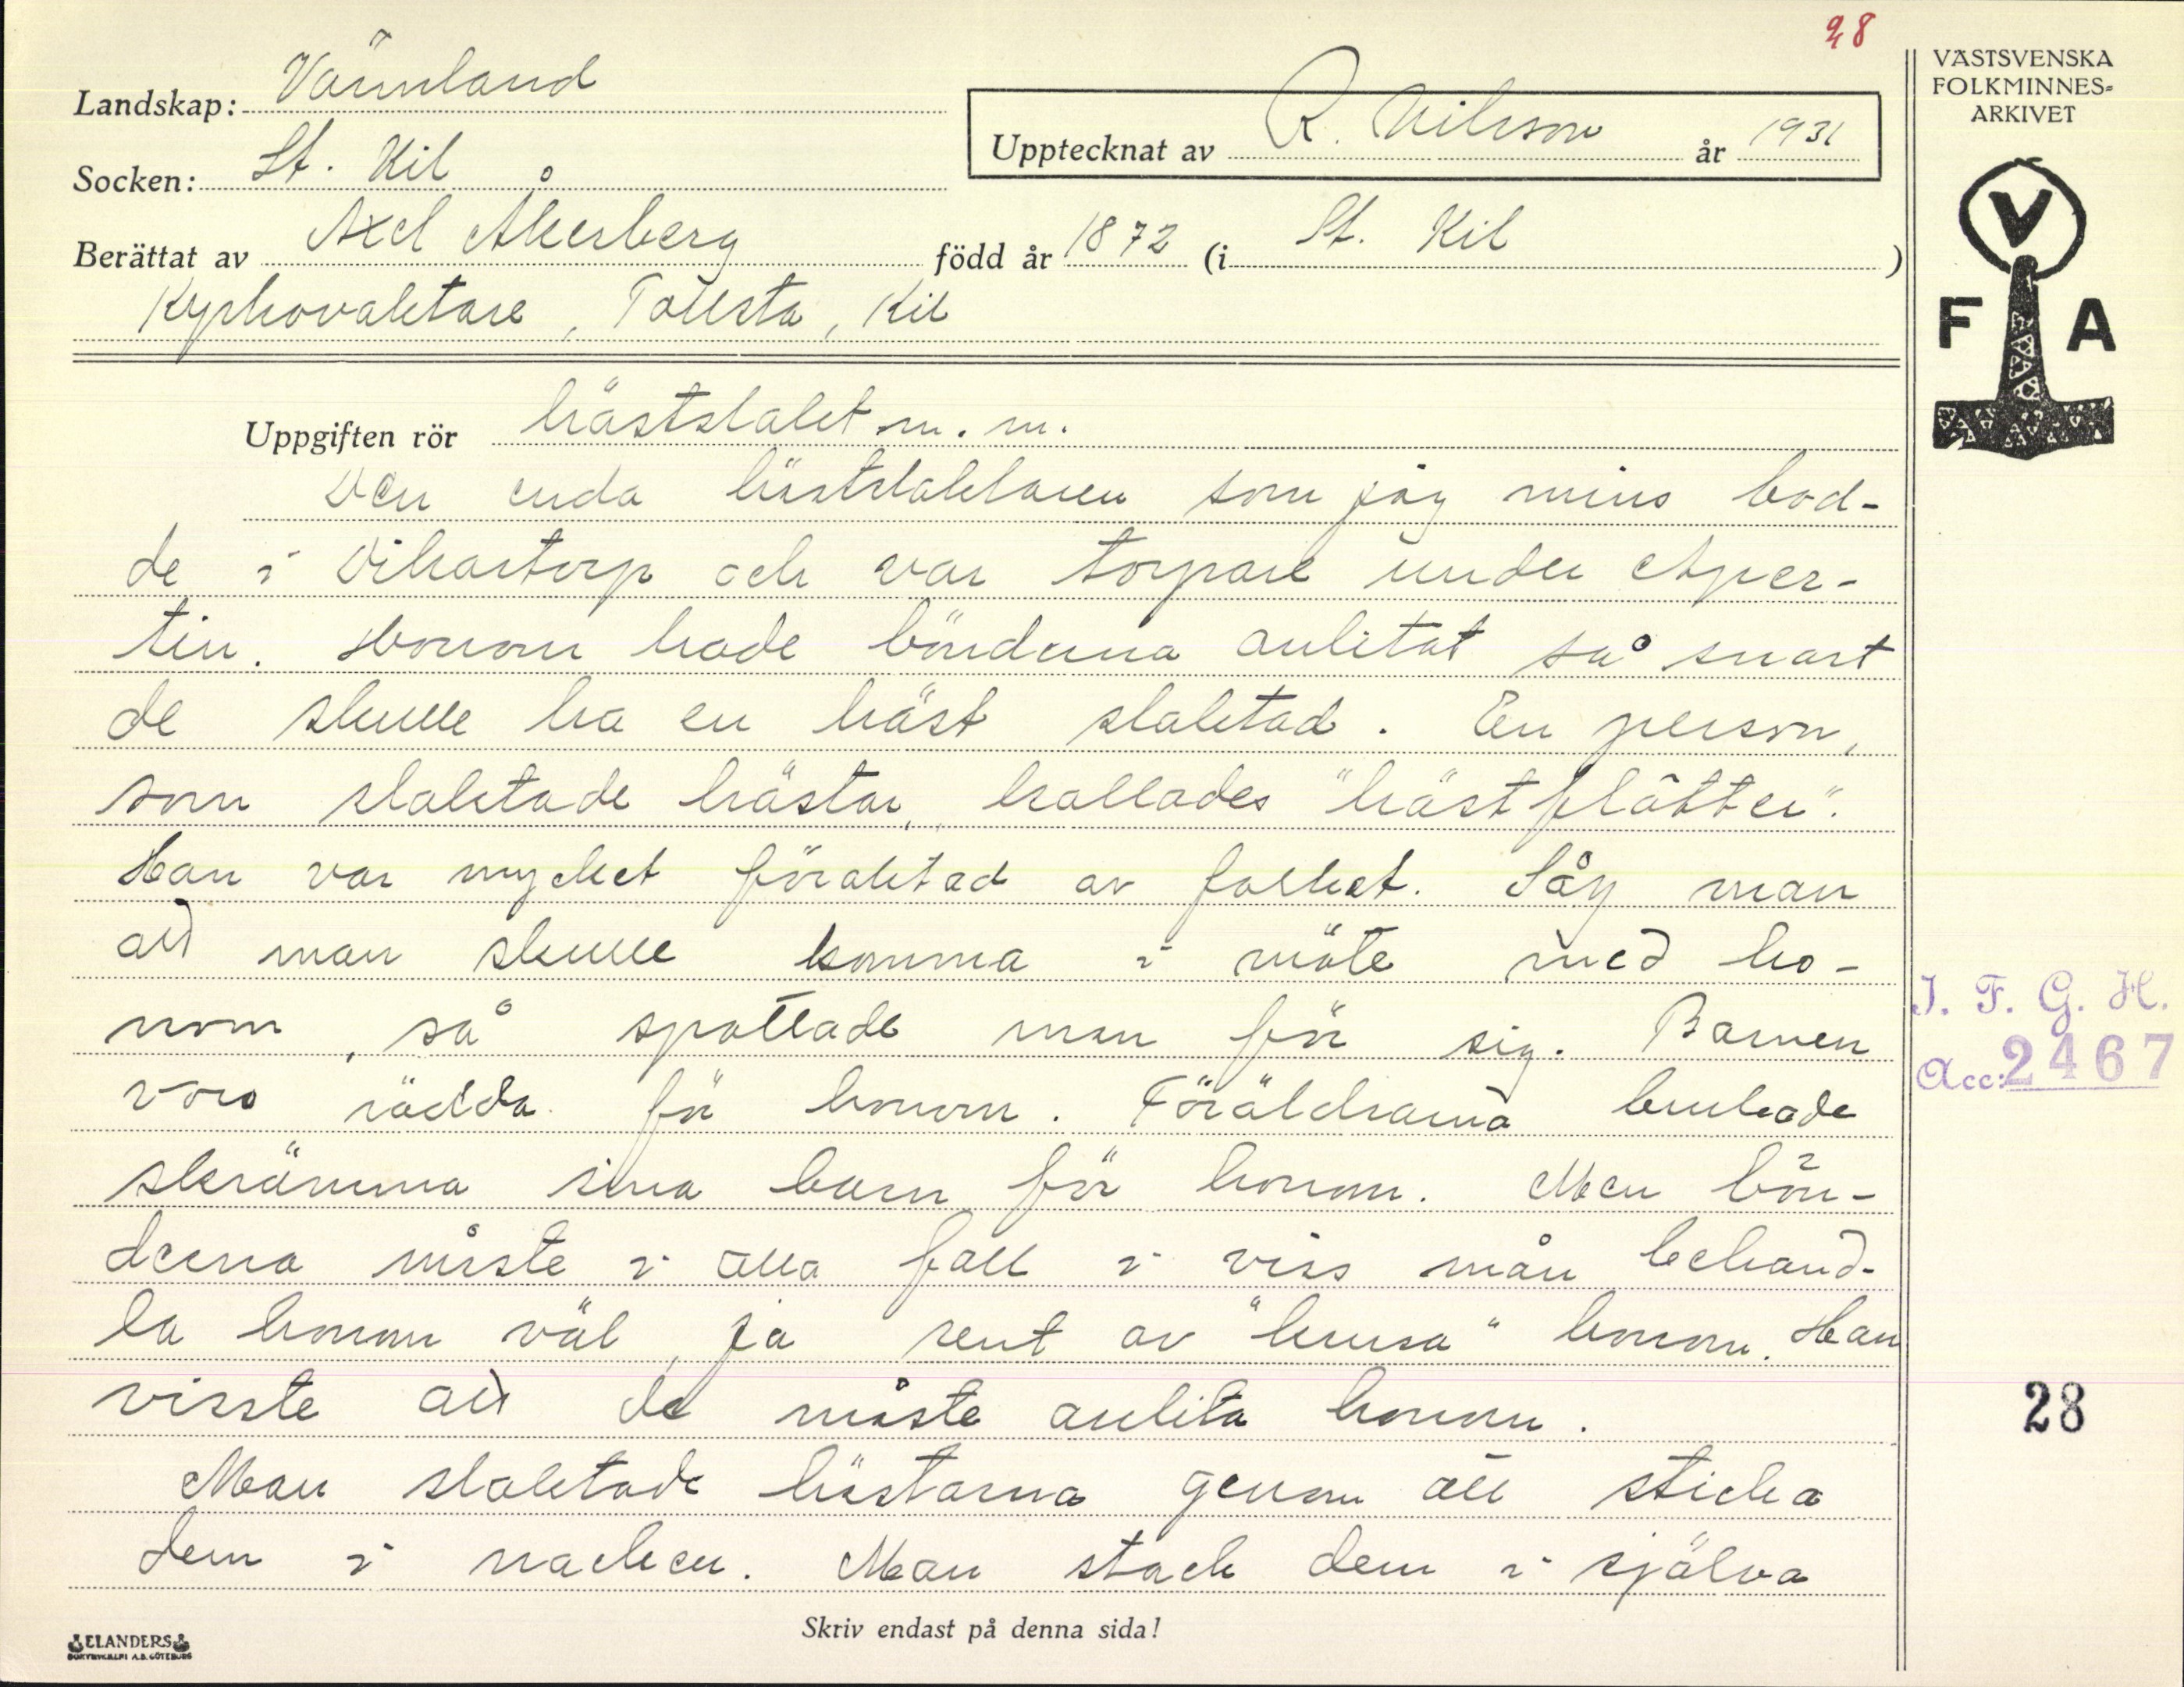 28
VÄSTSVENSKA
FOLKMINNES-
ARKIVET
Landskap: Värmland
Upptecknat av R. Nilsson år 1931
Socken: St. Kil
Berättat av Axel Åkerberg född år 1872 (i St. Kil)
Kyrkovaktare, Tolita, Kil
V
F A
Uppgiften rör hästslakt m. m.
Den enda hästslaktaren som jag mins bod-
de i Vikartorp och var torpare under Aper-
tin. Honom hade bönderna anlitat så snart
de skulle ha en häst slaktad. En person,
som slaktade hästar, kallades "hästflåtter".
Han var mycket föraktad av folket. Såg man
att man skulle komma i möte med ho-
nom, så spottade man för sig. Barnen
voro rädda för honom. Föräldrarna brukade
skrämma sina barn för honom. Men bön-
derna måste i alla fall i viss mån behand-
la honom väl, ja rent av "krusa" honom. Han
visste att de måste anlita honom.
Man slaktade hästarna genom att sticka
dem i nacken. Man stack dem i själva
J. F. G. H.
Acc: 2467
28
Skriv endast på denna sida!
ELANDERS
BOKTRYCKERI A.B. GÖTEBORG